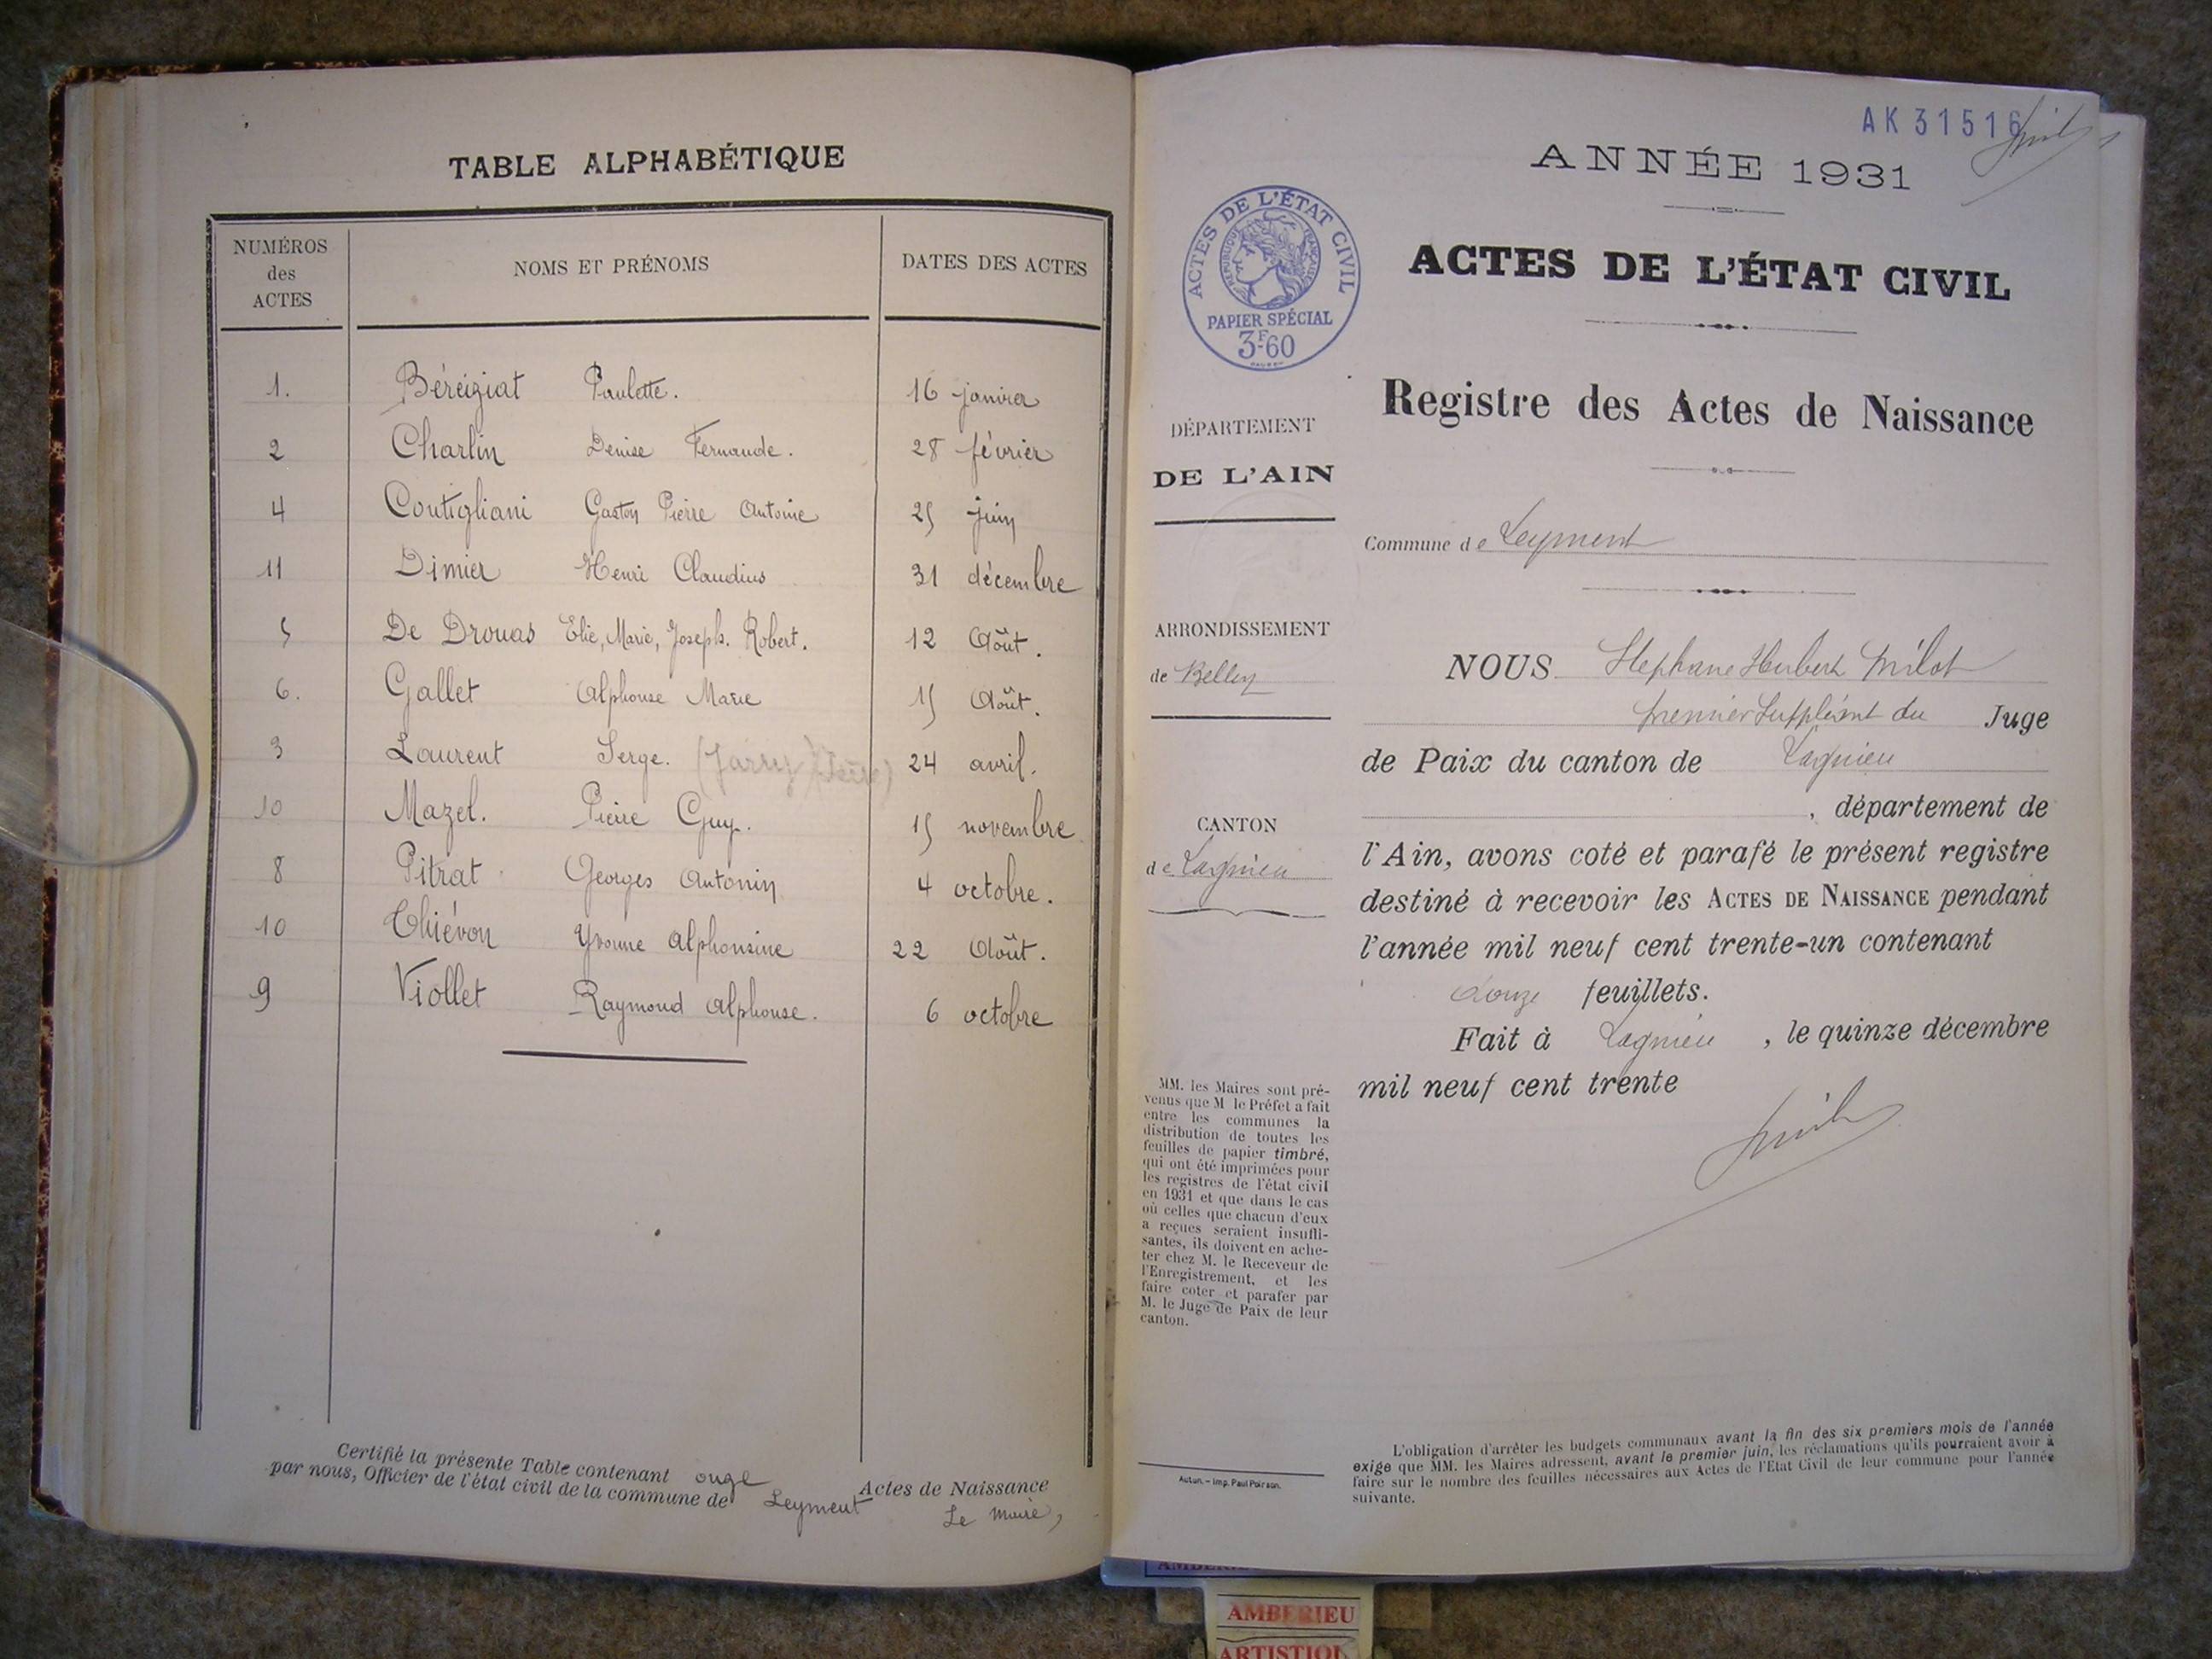 TABLE ALPHABÉTIQUE
NUMÉROS des ACTES NOMS ET PRÉNOMS DATES DES ACTES
1. Béréiziat Paulette. 16 janvier
2 Charlin Denise Fernande. 28 février
4 Contigliani Gaston Pierre Antoine 25 juin
11 Dimier Henri Claudius 31 décembre
5 De Drouas Elie, Marie, Joseph. Robert. 12 Août.
6. Gallet Alphonse Marie 15 Août.
3 Laurent Serge. (Jarrey 24 avril.
10 Mazel. Pierre Guy. 15 novembre
8 Pitrat Georges Antonin 4 octobre.
10 Thiévon Yvonne Alphonsine 22 Août.
9 Viollet Raymond Alphonse. 6 octobre
Certifié la présente Table contenant onze Actes de Naissance
par nous, Officier de l'état civil de la commune de Leyment
Le Maire,
AK 31516
ANNÉE 1931
ACTES DE L'ÉTAT CIVIL
RÉPUBLIQUE FRANÇAISE
PAPIER SPÉCIAL
3F60
ACTES DE L'ÉTAT CIVIL
Registre des Actes de Naissance
DÉPARTEMENT
DE L'AIN
Commune de Leyment
ARRONDISSEMENT
de Belley
CANTON
de Lagnieu
NOUS Stephane Hubert Milot
premier Suppléant du Juge
de Paix du canton de Lagnieu
, département de
l'Ain, avons coté et parafé le présent registre
destiné à recevoir les ACTES DE NAISSANCE pendant
l'année mil neuf cent trente-un contenant
douze feuillets.
Fait à Lagnieu , le quinze décembre
mil neuf cent trente
MM. les Maires sont pré-
venus que M le Préfet a fait
entre les communes la
distribution de toutes les
feuilles de papier timbré,
qui ont été imprimées pour
les registres de l'état civil
en 1931 et que dans le cas
où celles que chacun d'eux
a reçues seraient insuffi-
santes, ils doivent en ache-
ter chez M. le Receveur de
l'Enregistrement, et les
faire coter et parafer par
M. le Juge de Paix de leur
canton.
Autun. – Imp. Paul Poirson.
L'obligation d'arrêter les budgets communaux avant la fin des six premiers mois de l'année
exige que MM. les Maires adressent, avant le premier juin, les réclamations qu'ils pourraient avoir à
faire sur le nombre des feuilles nécessaires aux Actes de l'Etat Civil de leur commune pour l'année
suivante.
AMBERIEU
ARTISTIQU